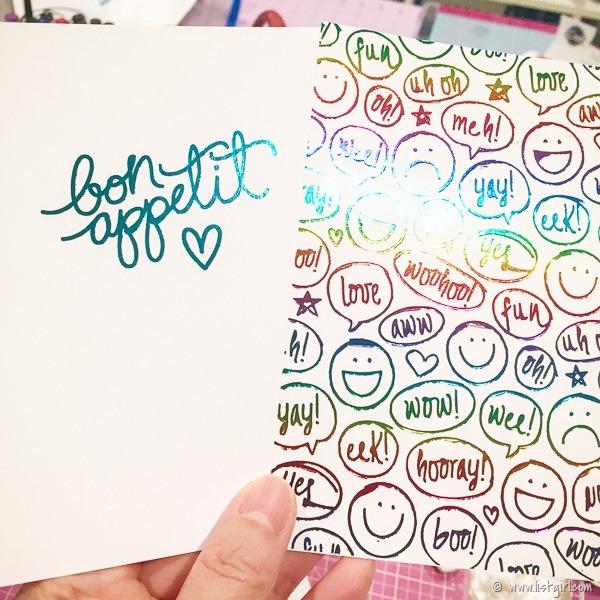 bon
appetit
fun
uh oh
love
oh!
meh!
aw
wee!
yay!
eek!
yes
oo!
love
woohoo!
fun
aww
uh o
h!
oh!
yay!
wow!
wee!
eek!
hooray!
yes
boo!
woo
fun
love
© www.listgirl.com